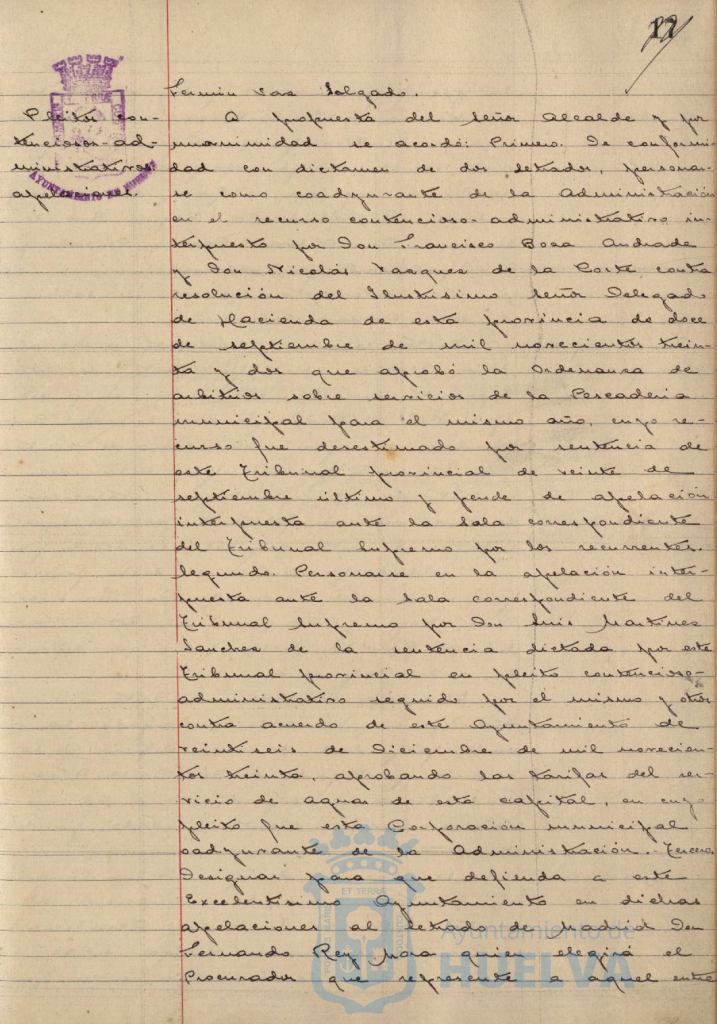 17
Fermín Vaz Salgado.
Pleitos con-
tenciosos-ad-
ministrativos
apelaciones.
A propuesta del Señor Alcalde y por
unanimidad se acordó: Primero. De conformi-
dad con dictamen de dos letrados, personar-
se como coadyuvante de la Administración
en el recurso contencioso-administrativo in-
terpuesto por Don Francisco Boza Andrade
y Don Nicolás Vazquez de la Corte contra
resolución del Ilustrísimo Señor Delegado
de Hacienda de esta provincia de doce
de septiembre de mil novecientos trein-
ta y dos que aprobó la Ordenanza de
arbitrios sobre servicios de la Pescadería
municipal para el mismo año, cuyo re-
curso fue desestimado por sentencia de
este Tribunal provincial de veinte de
septiembre último y pende de apelación
interpuesta ante la Sala correspondiente
del Tribunal Supremo por los recurrentes.
Segundo. Personarse en la apelación inter-
puesta ante la Sala correspondiente del
Tribunal Supremo por Don Luis Martinez
Sanchez de la sentencia dictada por este
Tribunal provincial en pleito contencioso-
administrativo seguido por el mismo y otros
contra acuerdo de este Ayuntamiento de
veintiseis de Diciembre de mil novecien-
tos treinta, aprobando las tarifas del ser-
vicio de aguas de esta capital, en cuyo
pleito fue esta Corporación municipal
coadyuvante de la Administración. Tercero.
Designar para que defienda a este
Excelentísimo Ayuntamiento en dichas
apelaciones al letrado de Madrid Don
Fernando Rey para quien elegirá el
Procurador que represente a aquel entre
Ayuntamiento de
HUELVA